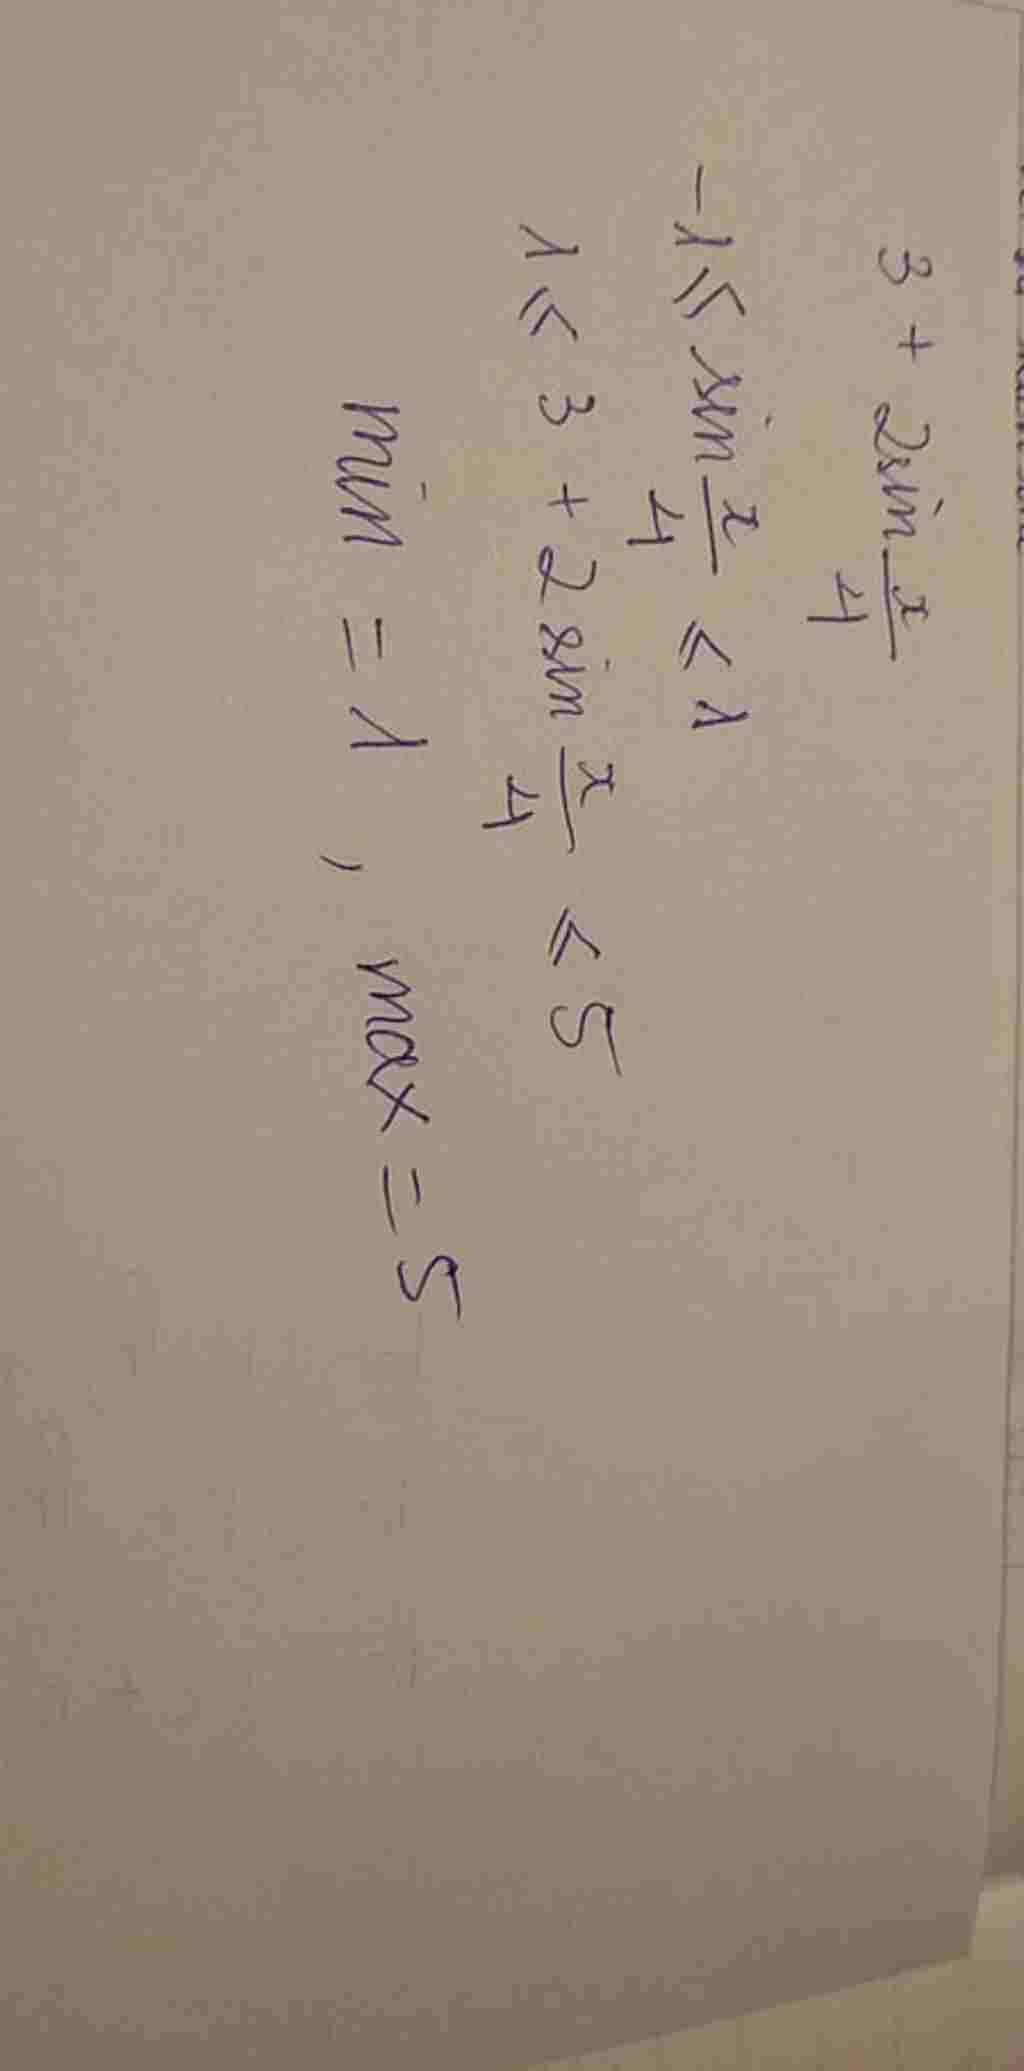 3 + 2sin x/4
-1 ⩽ sin x/4 ⩽ 1
1 ⩽ 3 + 2sin x/4 ⩽ 5
min = 1 , max = 5